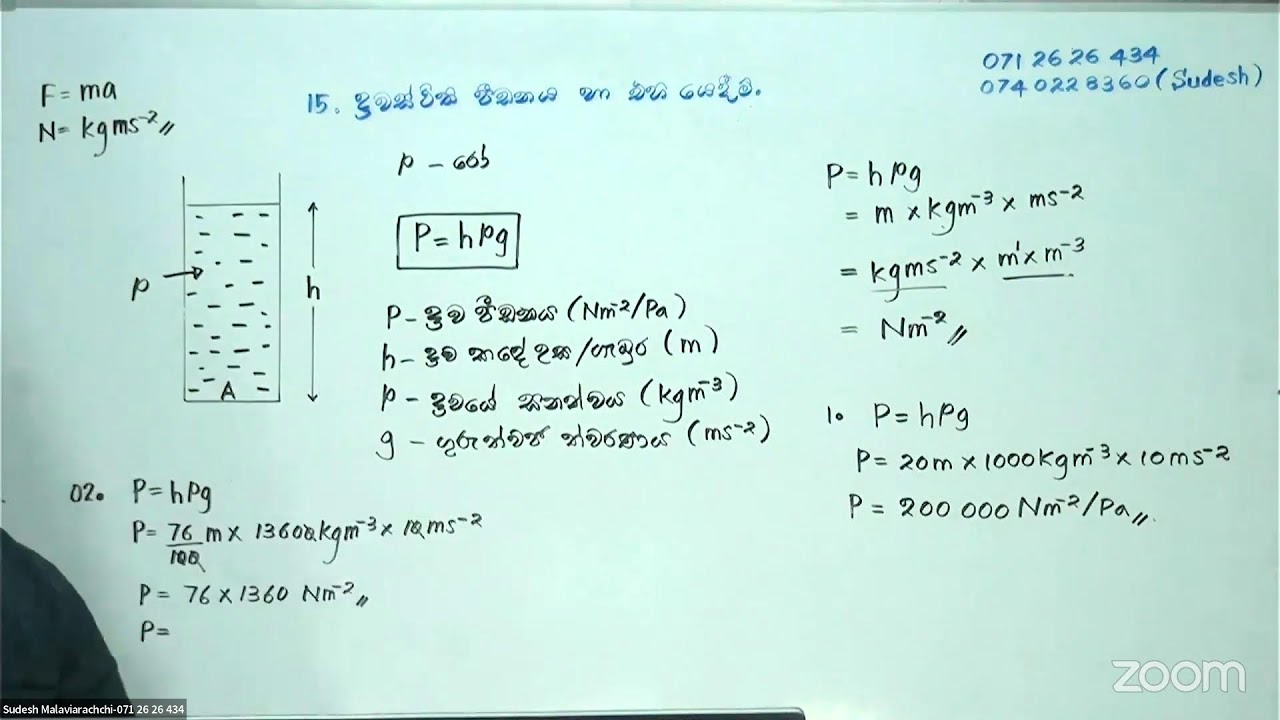 071 26 26 434
074 0228360 (Sudesh)
F = ma
N = kgms⁻²〃
15. ද්‍රවස්ථිති පීඩනය හා එහි යෙදීම්.
ρ – රෝ
P = hρg
ρ
h
A
P – ද්‍රව පීඩනය (Nm⁻²/Pa)
h – ද්‍රව කඳේ උස/ගැඹුර (m)
ρ – ද්‍රවයේ ඝනත්වය (kgm⁻³)
g – ගුරුත්වජ ත්වරණය (ms⁻²)
P = hρg
= m × kgm⁻³ × ms⁻²
= kgms⁻² × m¹ × m⁻³
= Nm⁻²〃
1. P = hρg
P = 20m × 1000kgm⁻³ × 10ms⁻²
P = 200 000 Nm⁻²/Pa〃
02. P = hρg
P = 76/100 m × 13600kgm⁻³ × 10ms⁻²
P = 76 × 1360 Nm⁻²〃
P =
zoom
Sudesh Malaviarachchi-071 26 26 434